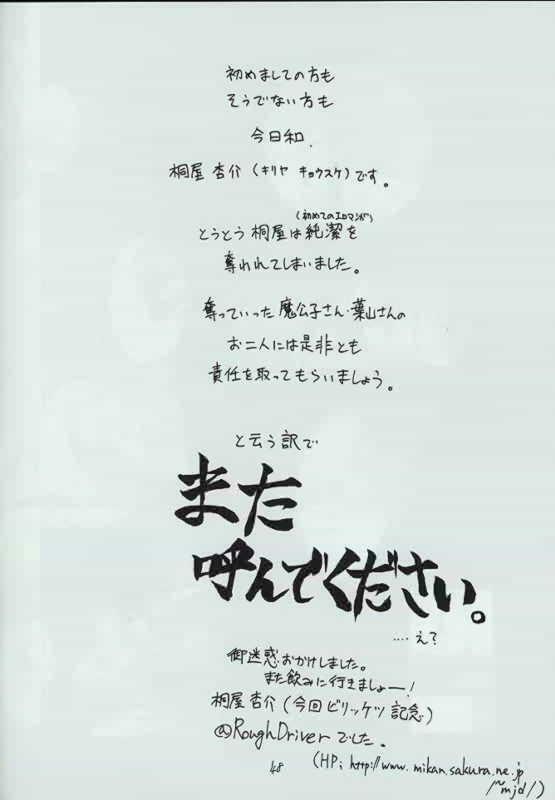 初めましての方も
そうでない方も
今日和.
桐屋 杏介 (キリヤ キョウスケ) です。
(初めてのエロマンガ)
とうとう 桐屋は純潔を
奪われてしまいました。
奪っていった 魔公子さん・葉山さんの
お二人には是非とも
責任を取ってもらいましょう。
と云う訳で
また
呼んでください。
‥‥え?
御迷惑おかけしました。
また飲みに行きましょー!
桐屋 杏介 (今回ビリッケツ記念)
@RoughDriver でした。
(HP; http://www.mikan.sakura.ne.jp
/~mjd/)
48